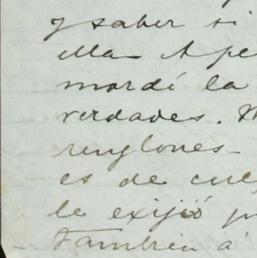 y saber si
ellas Ape
mordí la
verdades.
renglones
es de cul
le exijió p
También á